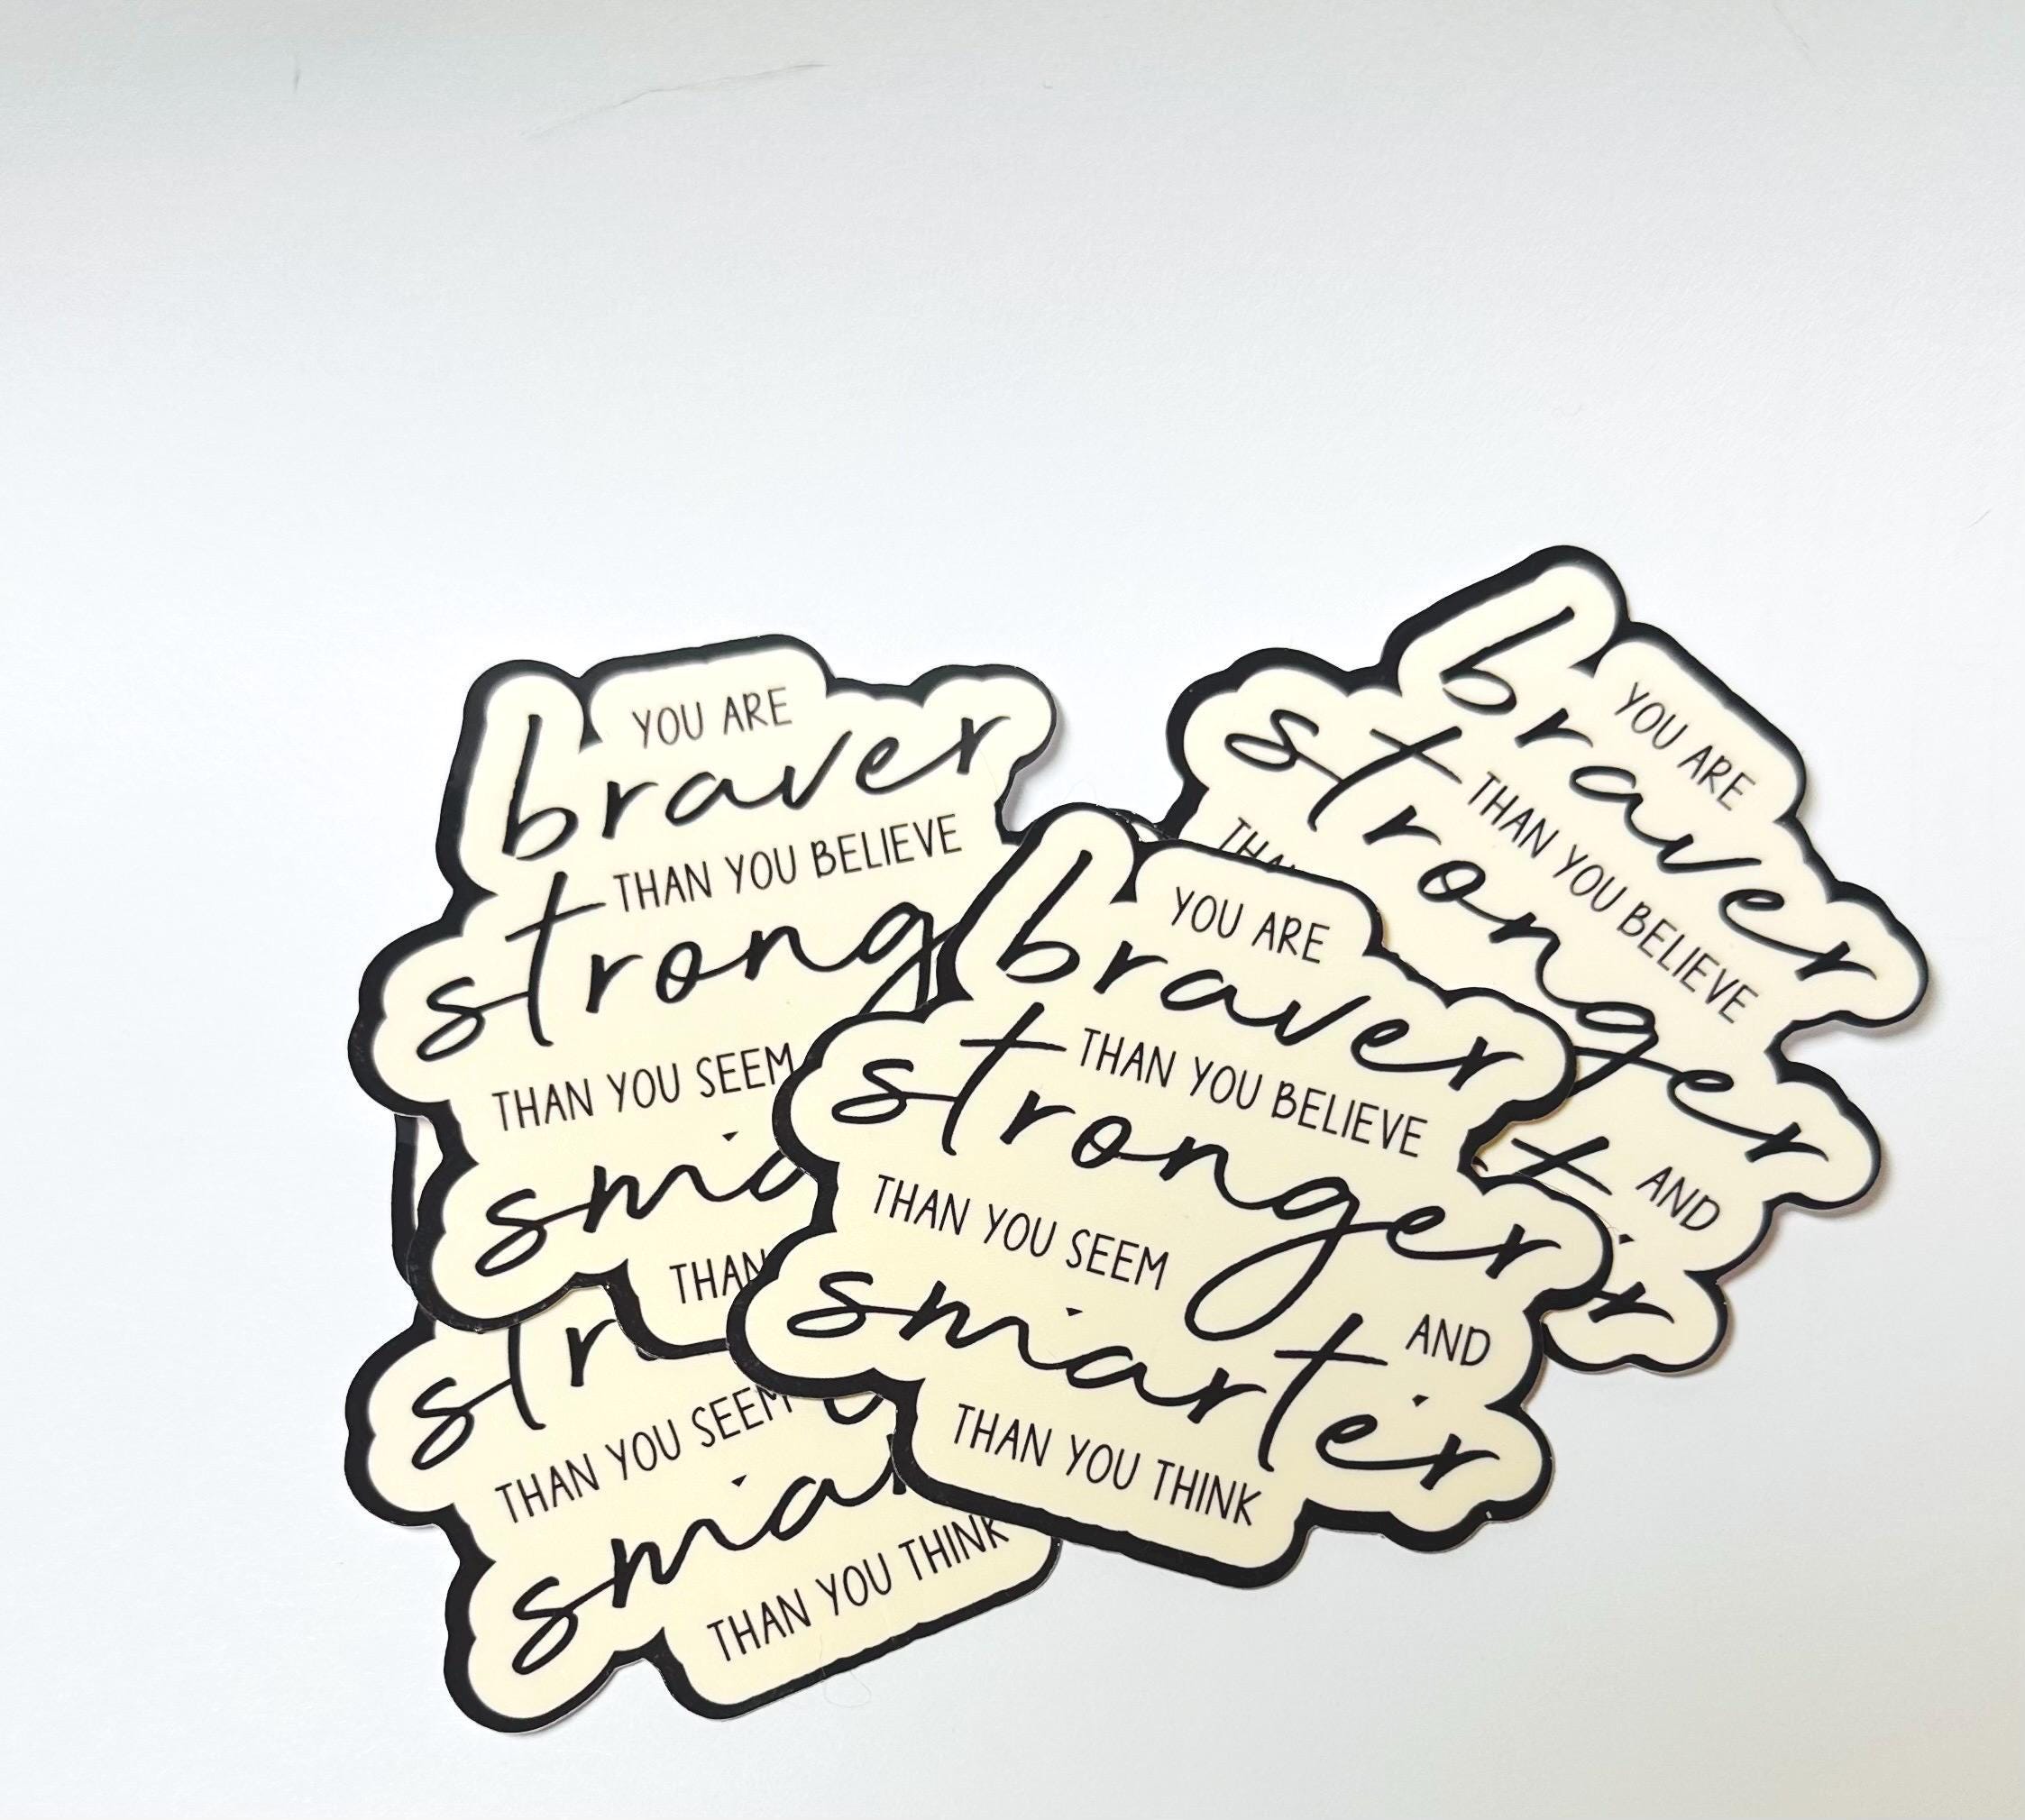 YOU ARE
braver
THAN YOU BELIEVE
strong
THAN YOU SEEM
THAN
YOU ARE
braver
THAN YOU BELIEVE
stronger
AND
YOU ARE
braver
THAN YOU BELIEVE
stronger
THAN YOU SEEM
AND
smarter
THAN YOU THINK
THAN YOU SEEM
THAN YOU THINK